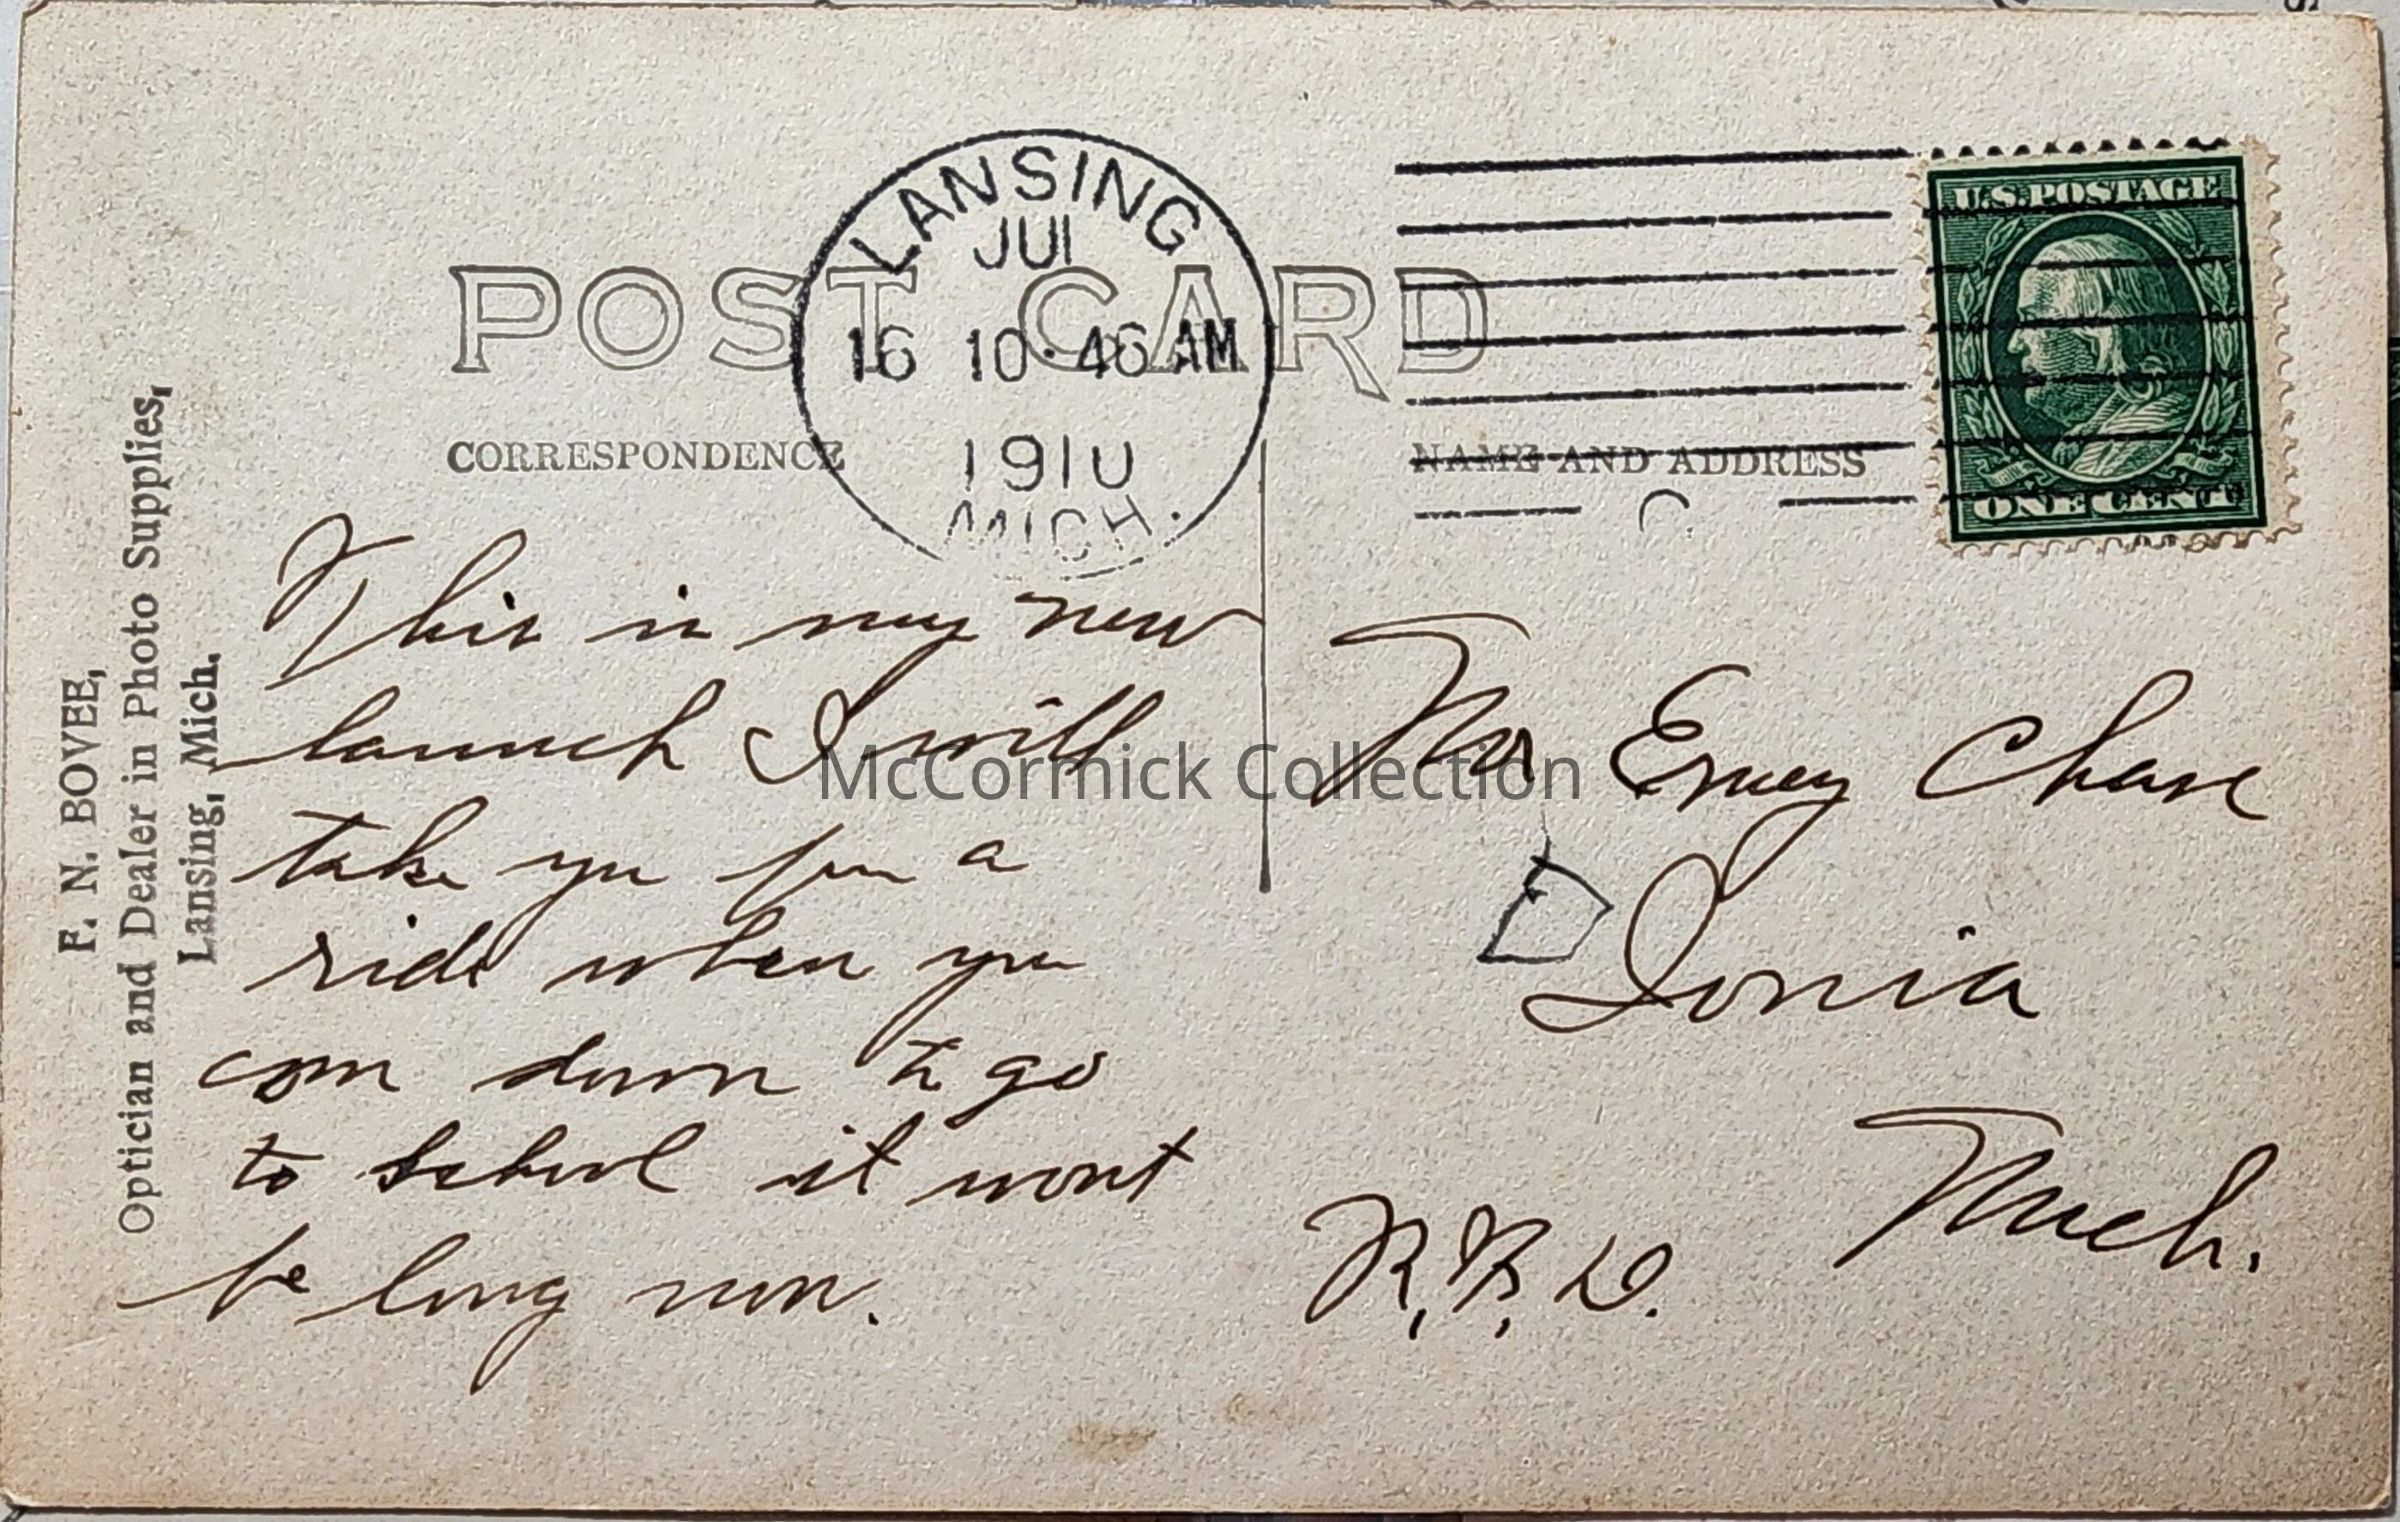 F. N. BOVEE,
Optician and Dealer in Photo Supplies,
Lansing, Mich.
POST CARD
CORRESPONDENCE
NAME AND ADDRESS
LANSING
JUL
16 10·46 AM
1910
MICH.
U.S. POSTAGE
ONE CENT
This is my new
launch I will
take you for a
ride when you
com down to go
to school it wont
be long now.
Mr Chase
Ionia
Mich.
R. F. D.
McCormick Collection